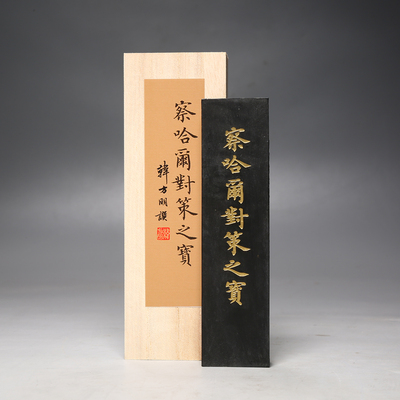 察哈爾對策之寶
韓方明題
察哈爾對策之寶